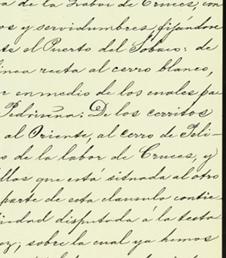 a de la Labor de Cruces, con
os y servidumbres, fijándose
te el Puerto del Tabaco: de
inea recta al cerro blanco,
en medio de los cuales pa
Pedriceña; De los cerritos
al Oriente, al cerro de Feli-
o de la labor de Cruces, y
llos que está situada al otro
parte de esta clausula contie
iedad disputada á la testa
oz, sobre la cual ya hemos